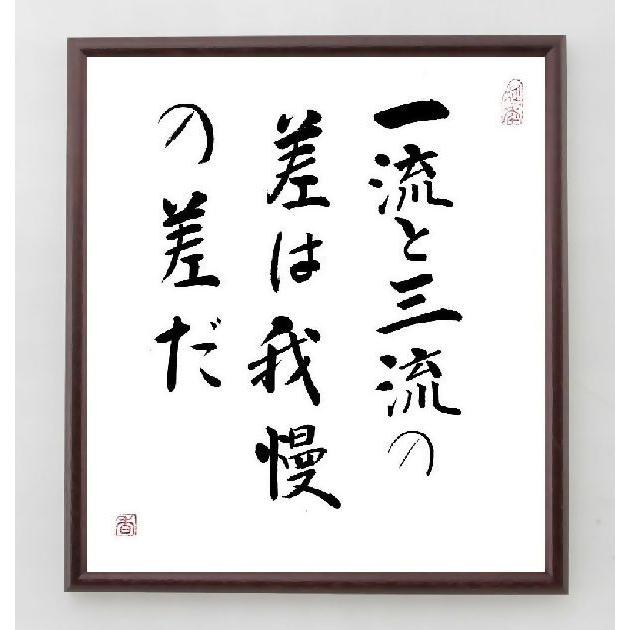 一流と三流の
差は我慢
の差だ